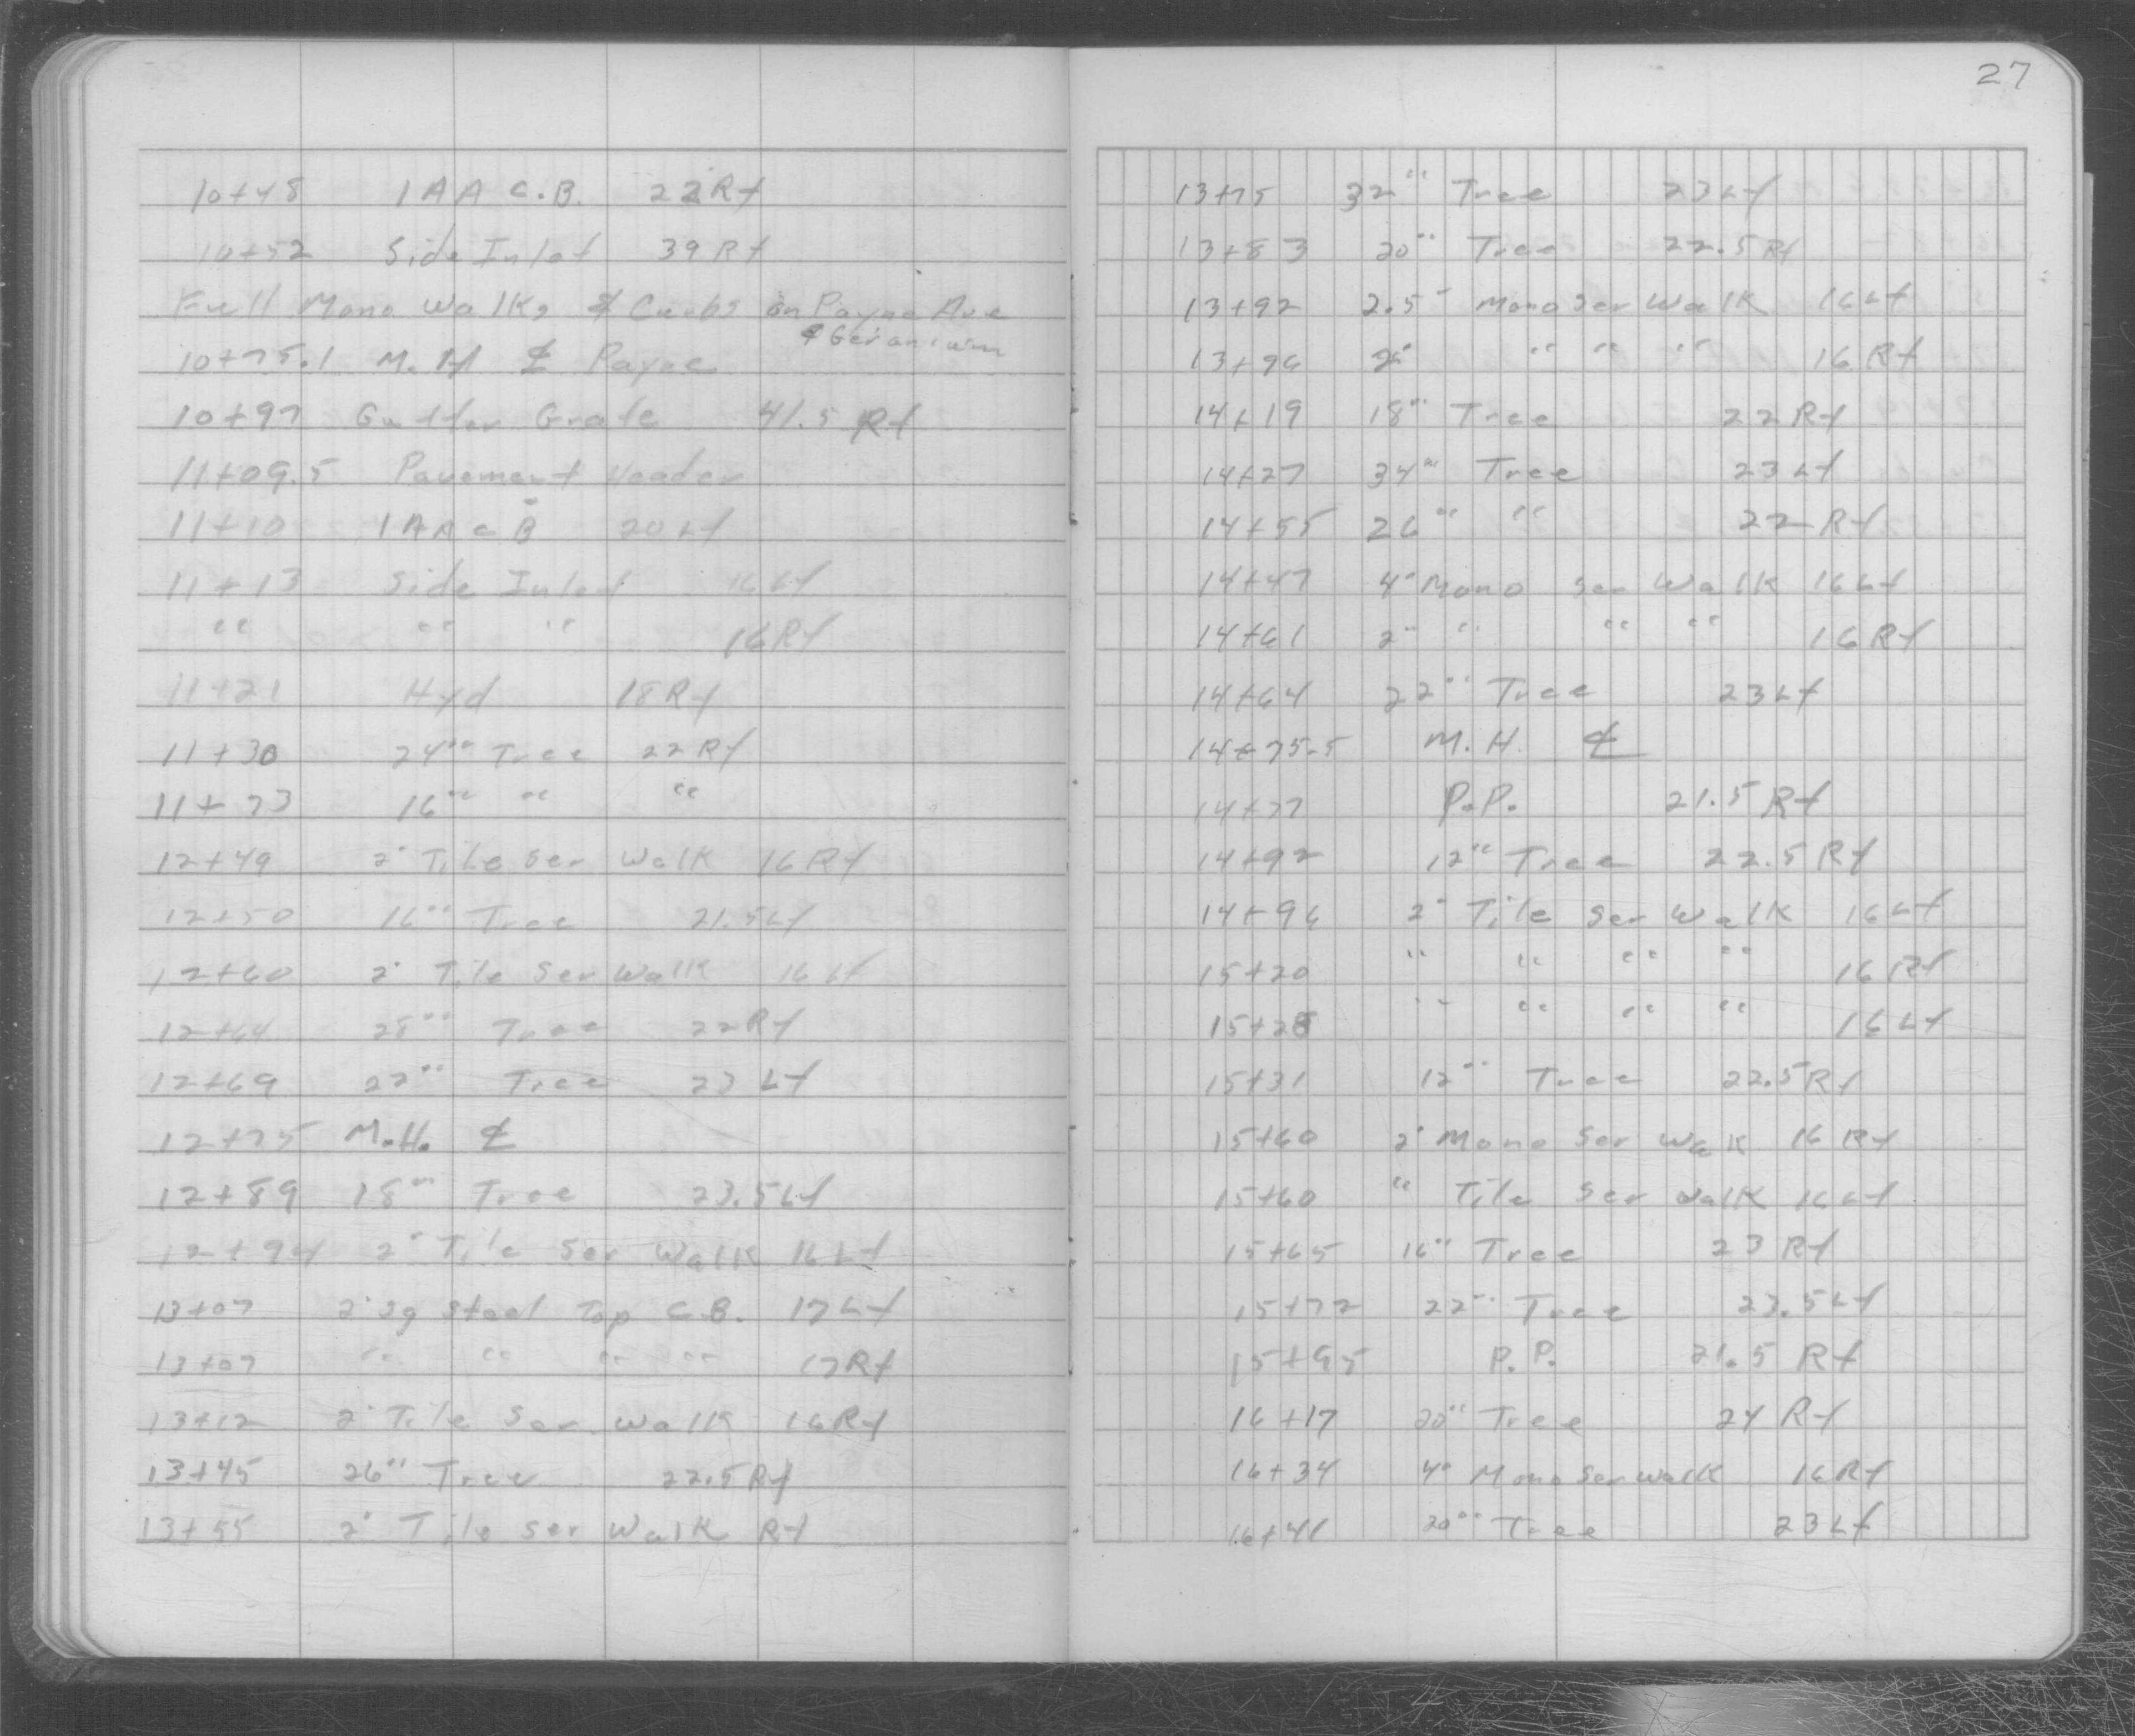 27
10+48 1 AA C.B. 22 Rt
10+52 Side Inlet 39 Rt
Full Mono Walks & Curbs on Payne Ave
& Geranium
10+75.1 M.H ℄ Payne
10+97 Gutter Grate 41.5 Rt
11+09.5 Pavement Header
11+10 1 AA C B 20 Lt
11+13 Side Inlet 16 Lt
" " " 16 Rt
11+21 Hyd 18 Rt
11+30 24" Tree 22 Rt
11+73 16" " "
12+49 2' Tile Ser Walk 16 Rt
12+50 16" Tree 21.5 Lt
12+60 2' Tile Ser Walk 16 Lt
12+64 28" Tree 22 Rt
12+69 22" Tree 23 Lt
12+75 M.H. ℄
12+89 18" Tree 23.5 Lt
12+94 2' Tile Ser Walk 16 Lt
13+07 2' Sq Steel Top C.B. 17 Lt
13+07 " " " " 17 Rt
13+12 2' Tile Ser Walk 16 Rt
13+45 26" Tree 22.5 Rt
13+55 2' Tile Ser Walk Rt
13+75 32" Tree 23 Lt
13+83 20" Tree 22.5 Rt
13+92 2.5' Mono Ser Walk 16 Lt
13+96 " " " 16 Rt
14+19 18" Tree 22 Rt
14+27 34" Tree 23 Lt
14+55 26" " 22 Rt
14+47 4' Mono Ser Walk 16 Lt
14+61 2' " " " 16 Rt
14+64 22" Tree 23 Lt
14+75.5 M.H. ℄
14+77 P.P. 21.5 Rt
14+92 12" Tree 22.5 Rt
14+96 2' Tile Ser Walk 16 Lt
15+20 " " " " 16 Rt
15+28 " " " " 16 Lt
15+31 12" Tree 22.5 Rt
15+60 2' Mono Ser Walk 16 Rt
15+60 " Tile Ser Walk 16 Lt
15+65 16" Tree 23 Rt
15+72 22" Tree 23.5 Lt
15+95 P.P. 21.5 Rt
16+17 20" Tree 24 Rt
16+34 4' Mono Ser Walk 16 Rt
16+41 20" Tree 23 Lt